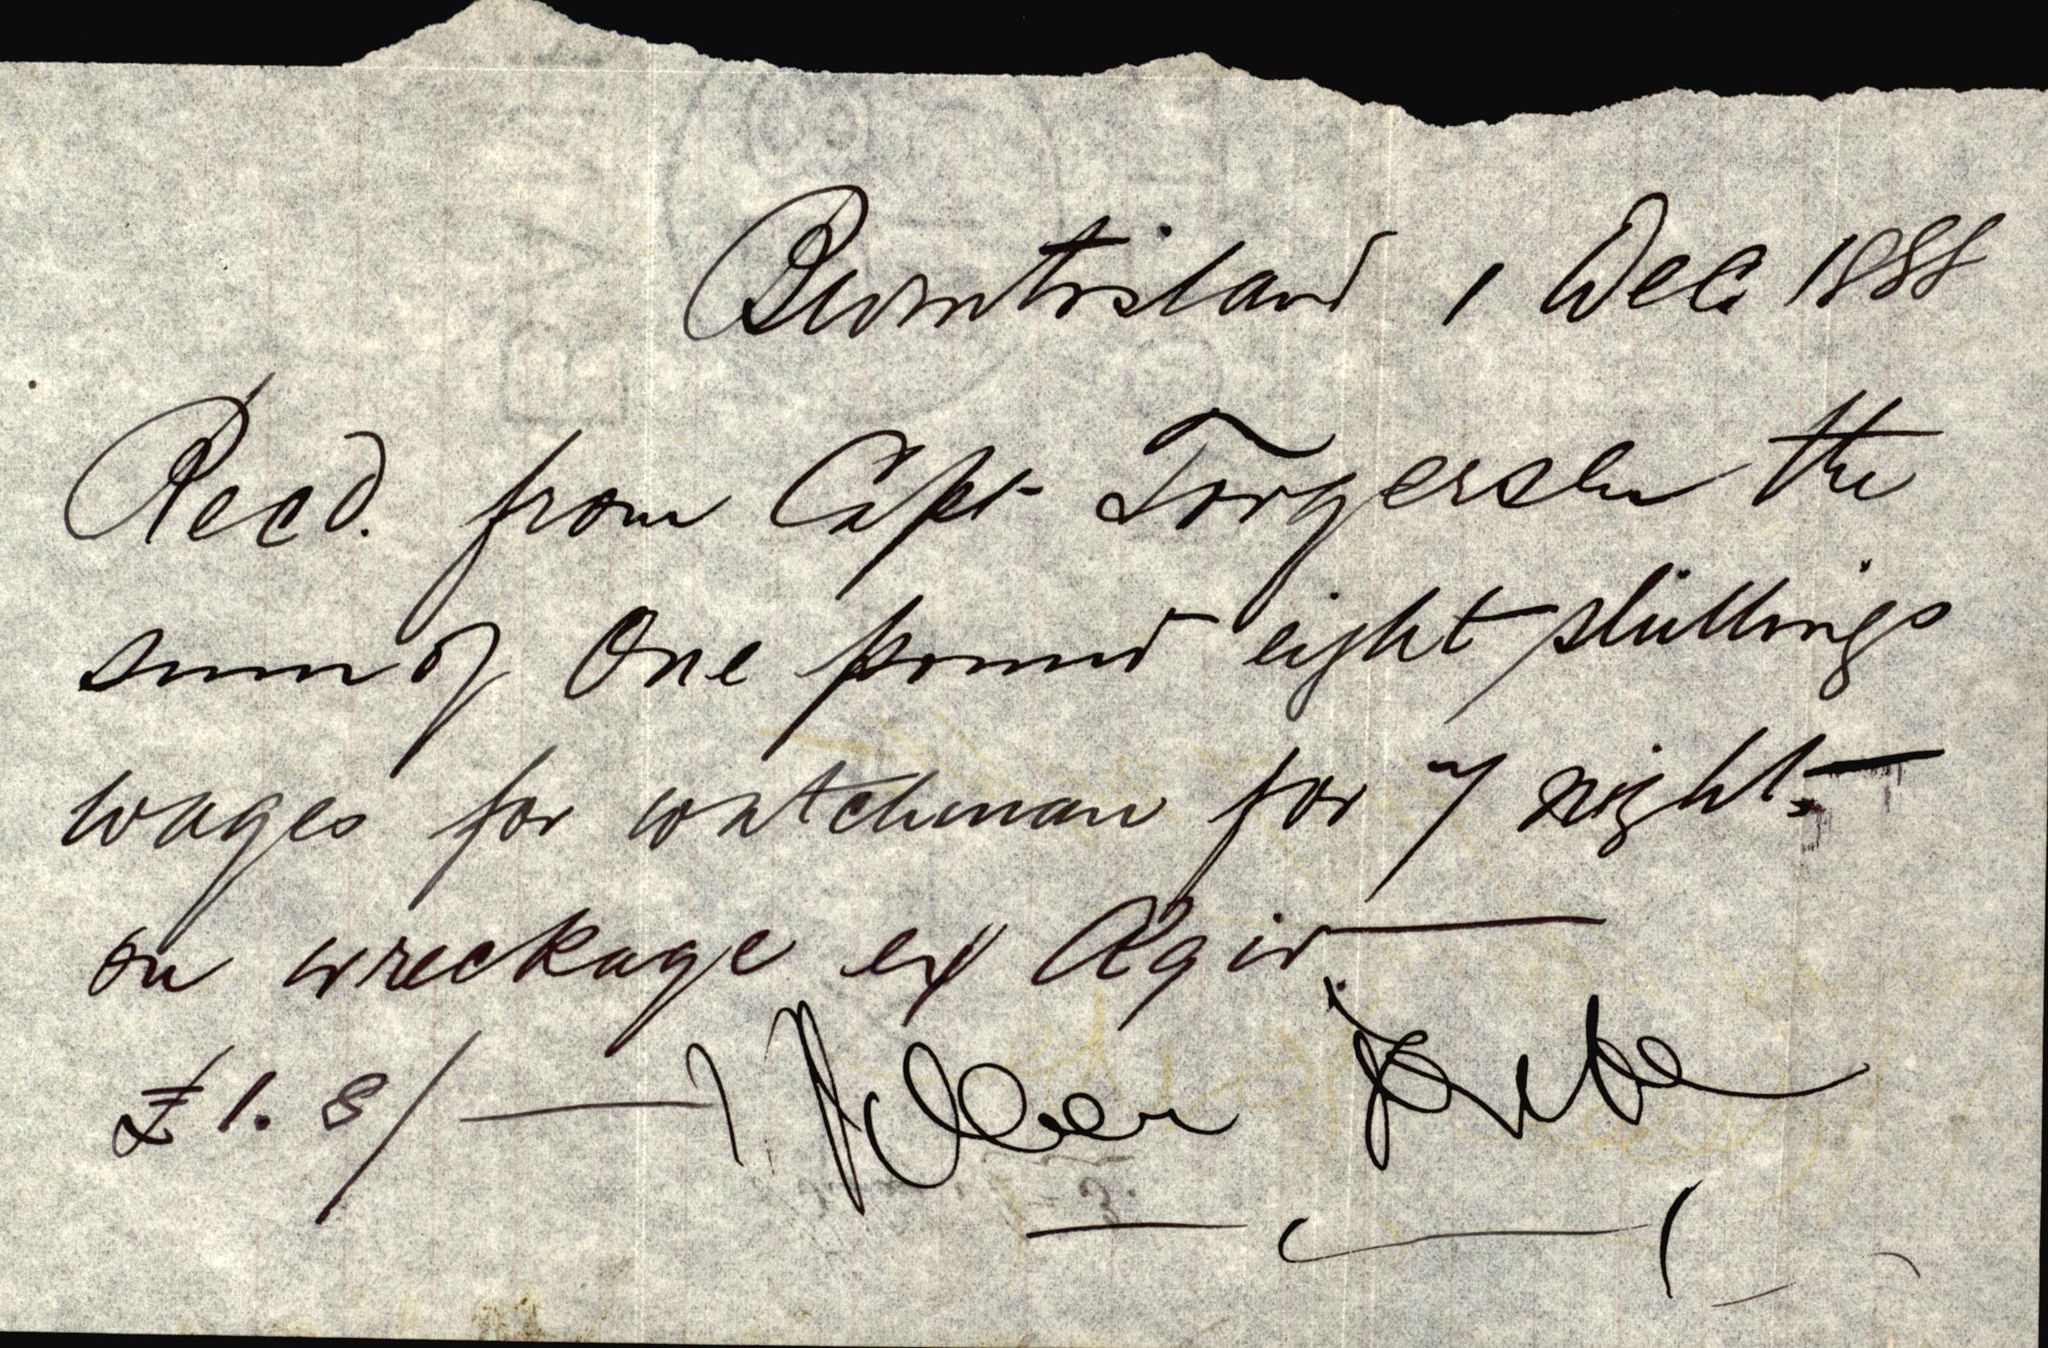 Burntisland 1 Dec. 1888
Recd. from Capt Torgersen the
sum of One pound eight shillings
wages for watchman for 7 nights
on wreckage ex Ægir
£ 1. 8/